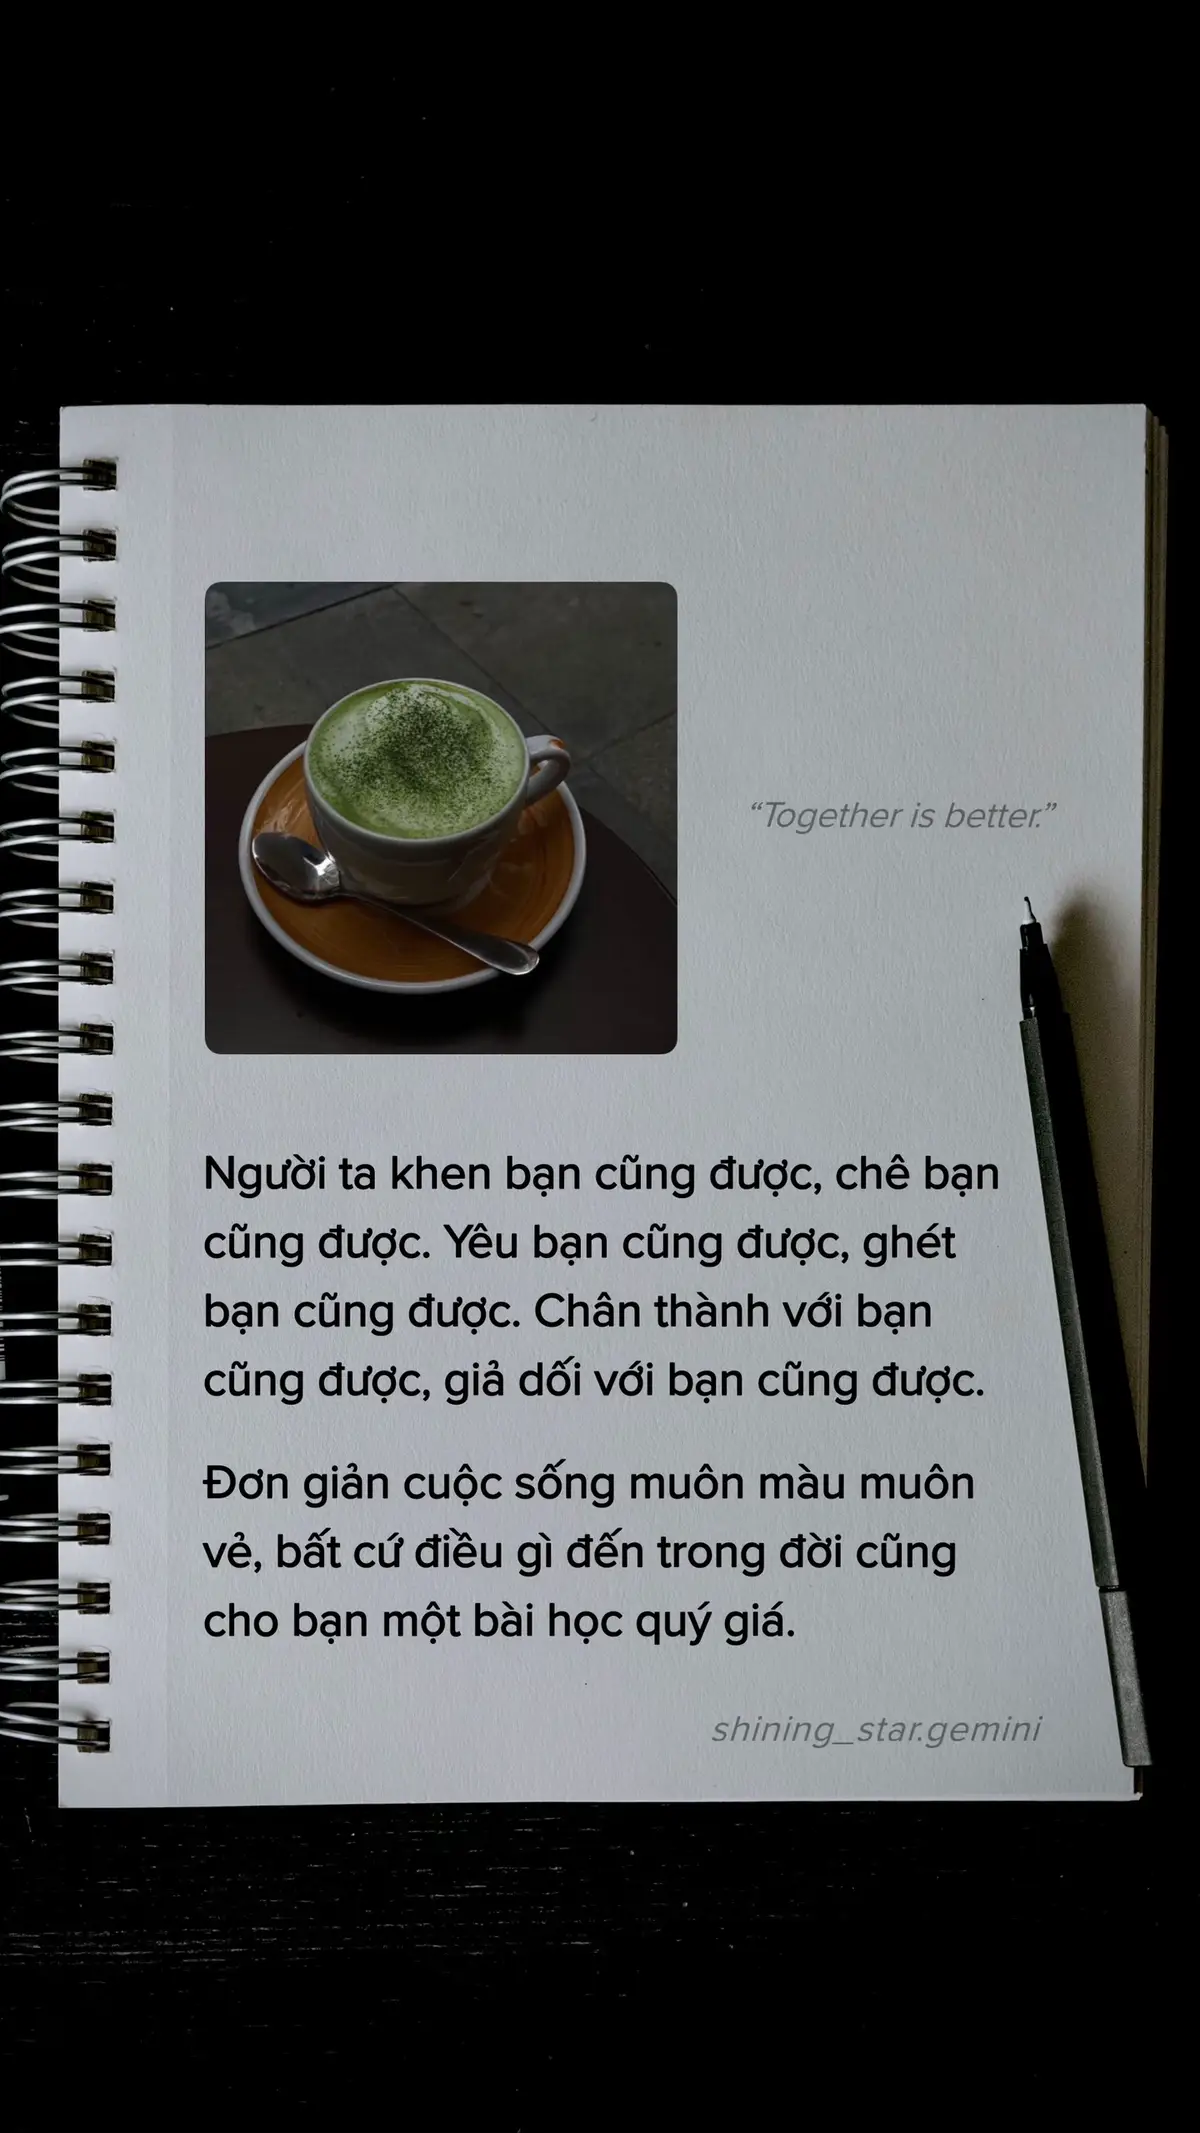 “Together is better.”
Người ta khen bạn cũng được, chê bạn
cũng được. Yêu bạn cũng được, ghét
bạn cũng được. Chân thành với bạn
cũng được, giả dối với bạn cũng được.
Đơn giản cuộc sống muôn màu muôn
vẻ, bất cứ điều gì đến trong đời cũng
cho bạn một bài học quý giá.
shining_star.gemini